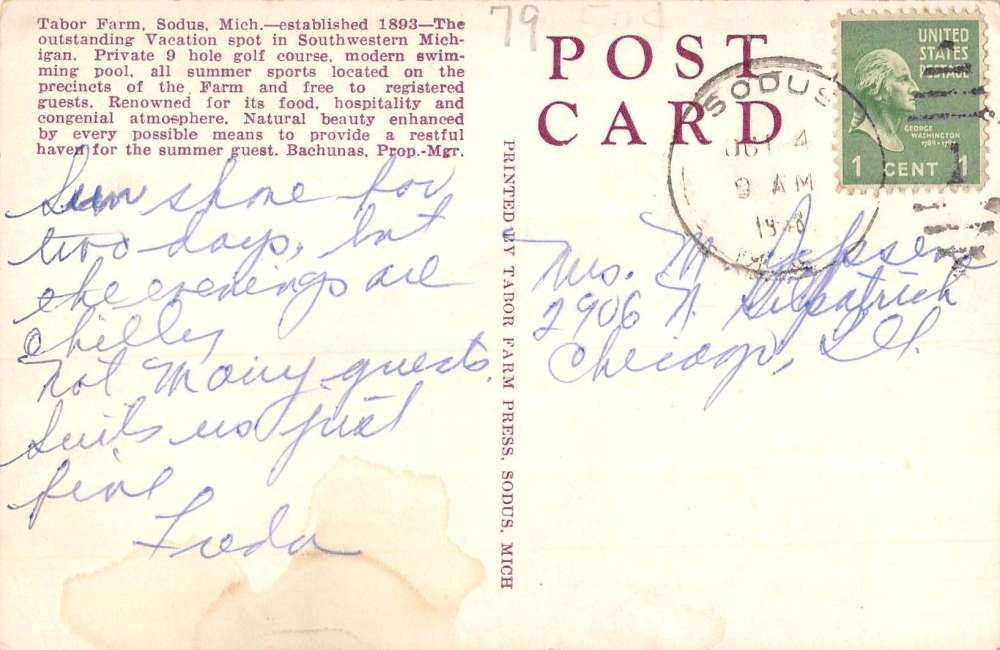 Tabor Farm, Sodus, Mich.—established 1893—The
outstanding Vacation spot in Southwestern Mich-
igan. Private 9 hole golf course, modern swim-
ming pool, all summer sports located on the
precincts of the Farm and free to registered
guests. Renowned for its food, hospitality and
congenial atmosphere. Natural beauty enhanced
by every possible means to provide a restful
haven for the summer guest. Bachunas, Prop.-Mgr.
Sun shone for
two days, but
the evenings are
chilly
Not Many guests.
Suits us just
fine
Freda
PRINTED BY TABOR FARM PRESS, SODUS, MICH
79
POST
CARD
SODUS
4
9 AM
1948
UNITED
STATES
POSTAGE
GEORGE
WASHINGTON
1 CENT 1
Mrs. M. Jepsen
2906 N. Kilpatrick
Chicago, Ill.